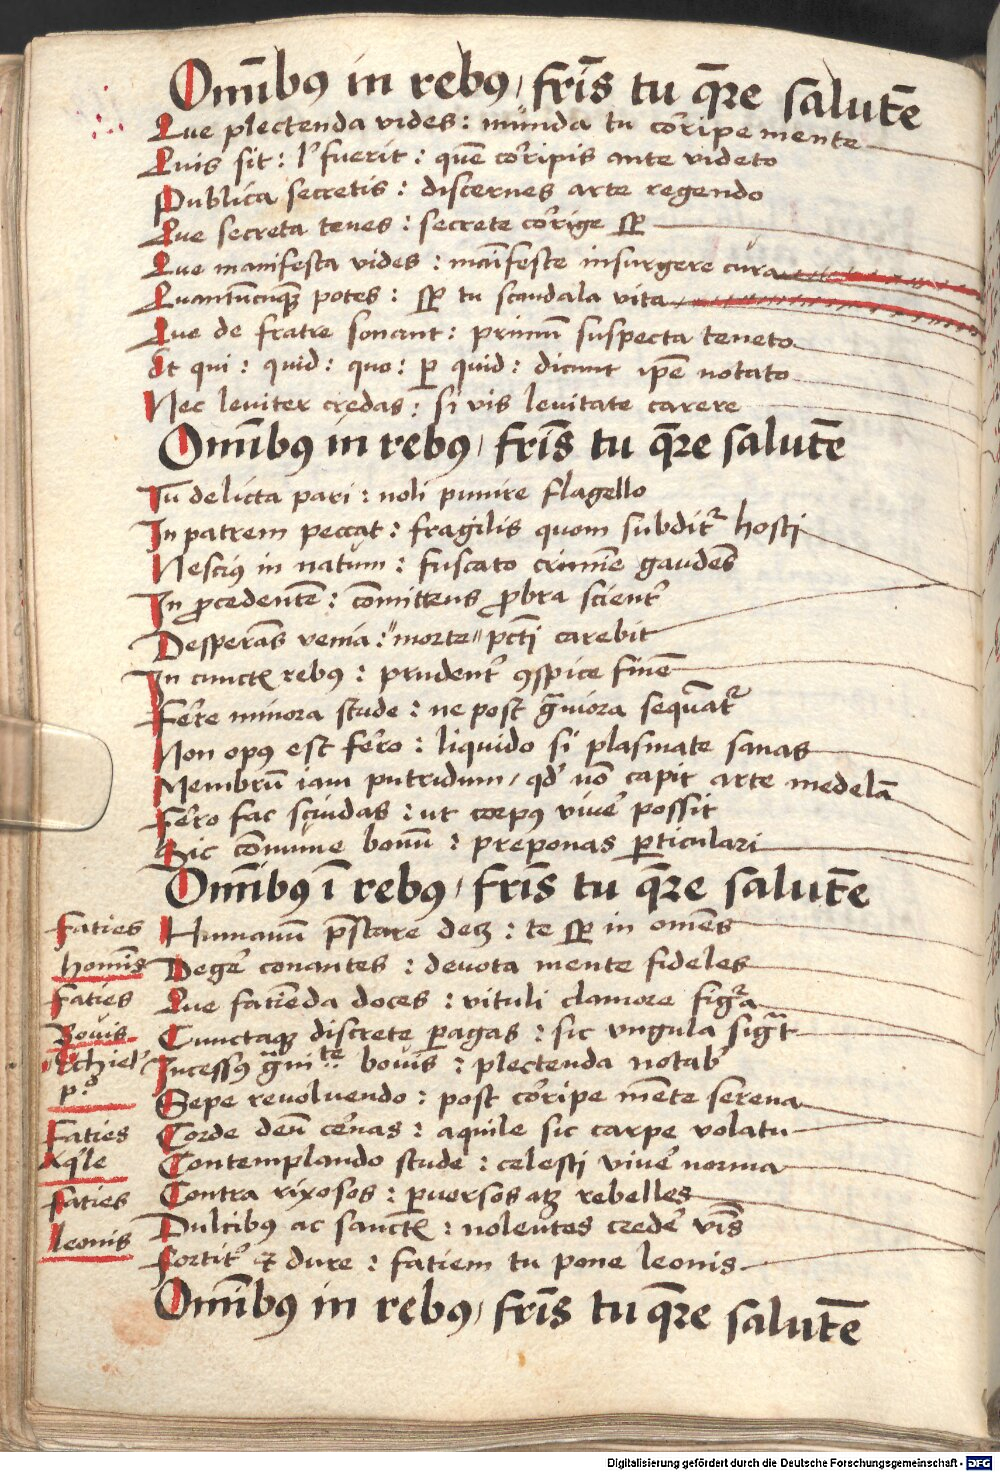 Om̅ibꝯ in rebꝯ, fr̅is tu q̅re salute̅
Que plectenda vides: munda tu co̅ripe mente
Quis sit: l' fuerit: que̅ co̅ripis ante videto
Publica secretis: discernes arte regendo
Que secreta tenes: secrete co̅rige sp̅
Que manifesta vides: mai̅feste insurgere cura
Quantu̅cu̅qꝫ potes: sp̅ tu scandala vita
Que de fratre sonant: primu̅ suspecta teneto
At qui: quid: quo: ꝑ quid: dicunt ip̅e notato
Nec leviter credas: si vis levitate carere
Om̅ibꝯ in rebꝯ, fr̅is tu q̅re salute̅
Tu delicta pari: noli punire flagello
In patrem peccat: fragilis quom subdit᷑ hosti
Nesciꝯ in natum: fuscato crimi̅e gaude̅s
In ꝓcedente̅: co̅mittens ꝓbra scient᷑
Despera̅s venia: "morte" pct̅i carebit
In cunctꝭ rebꝯ: prudent᷑ ꝯspice fine̅
Fe̅re minora stude: ne post g̅viora sequa̅t᷑
Non opꝯ est fe̅ro: liquido si plasmate sanas
Membru̅ iam putridum, qd' no̅ capit arte medela̅
Fe̅ro fac scindas: ut corpꝯ vive̅ possit
Sic co̅mune bonu̅: preponas ꝑticulari
Om̅ibꝯ i̅ rebꝯ, fr̅is tu q̅re salute̅
Faties Humanu̅ p̅stare decꝫ: te sp̅ in om̅es
homi̅s Dege̅ conantes: devota mente fideles
Faties Que facie̅da doces: vituli clamore fig̅a
Bovis Cunctaqꝫ discrete ꝑagas: sic vngula sig̅t
Echiel' Incessꝯ g̅vi te bovis: plectenda notab'
pº Sepe revolvendo: post co̅ripe me̅te serena
Faties Corde deu̅ ce̅nas: aquile sic carpe volatu
Aq̅le Contemplando stude: celesti vive̅ norma
Faties Contra rixosos: ꝑversos atqꝫ rebelles
leonis Dulcibꝯ ac sanctꝭ: nolentes crede̅ v̅is
Fortit᷑ et dure: fatiem tu pone leonis
Om̅ibꝯ in rebꝯ, fr̅is tu q̅re salute̅
Digitalisierung gefördert durch die Deutsche Forschungsgemeinschaft - DFG